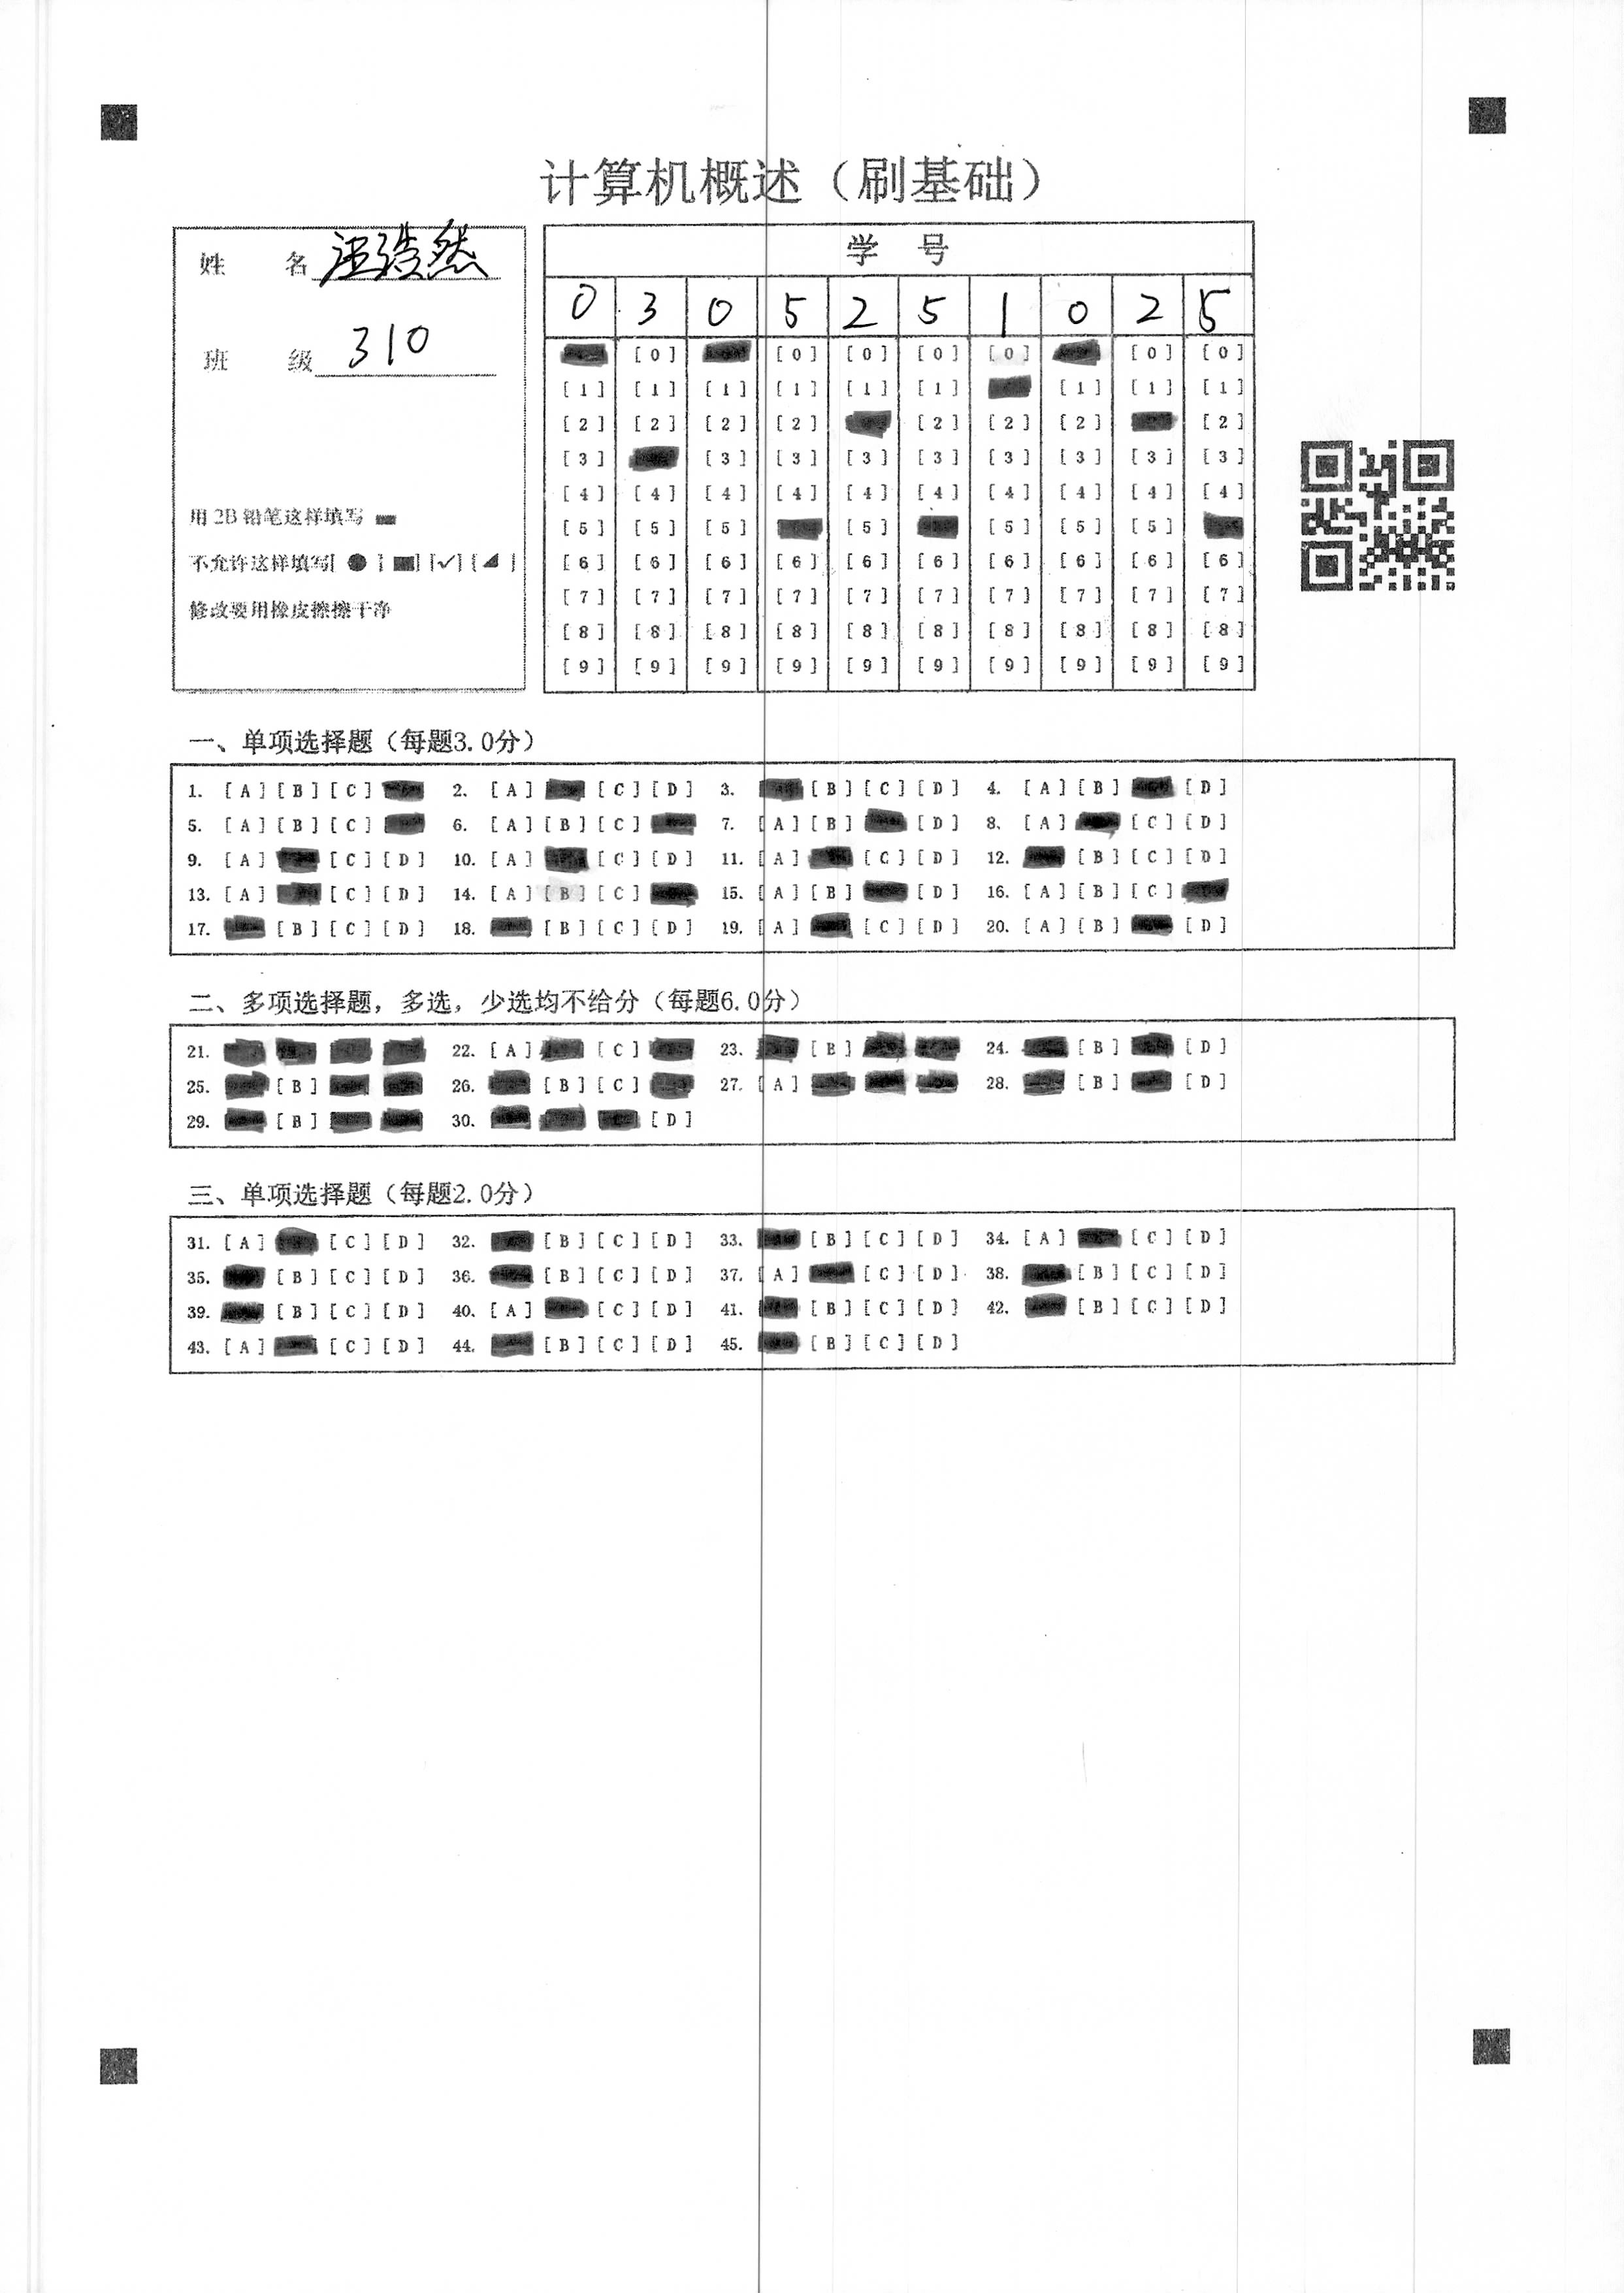 计算机概述（刷基础）
姓 名 汪浩然
班 级 310
用 2B 铅笔这样填写
不允许这样填写[ ● ] [■] [✓] [◢]
修改要用橡皮擦擦干净
学 号
0 3 0 5 2 5 1 0 2 5
[0] [0] [0] [0] [0] [0] [0]
[1] [1] [1] [1] [1] [1] [1] [1] [1]
[2] [2] [2] [2] [2] [2] [2] [2]
[3] [3] [3] [3] [3] [3] [3] [3] [3]
[4] [4] [4] [4] [4] [4] [4] [4] [4] [4]
[5] [5] [5] [5] [5] [5] [5]
[6] [6] [6] [6] [6] [6] [6] [6] [6] [6]
[7] [7] [7] [7] [7] [7] [7] [7] [7] [7]
[8] [8] [8] [8] [8] [8] [8] [8] [8] [8]
[9] [9] [9] [9] [9] [9] [9] [9] [9] [9]
一、单项选择题（每题3.0分）
1. [A] [B] [C] 2. [A] [C] [D] 3. [B] [C] [D] 4. [A] [B] [D]
5. [A] [B] [C] 6. [A] [B] [C] 7. [A] [B] [D] 8. [A] [C] [D]
9. [A] [C] [D] 10. [A] [C] [D] 11. [A] [C] [D] 12. [B] [C] [D]
13. [A] [C] [D] 14. [A] [B] [C] 15. [A] [B] [D] 16. [A] [B] [C]
17. [B] [C] [D] 18. [B] [C] [D] 19. [A] [C] [D] 20. [A] [B] [D]
二、多项选择题，多选，少选均不给分（每题6.0分）
21. 22. [A] [C] 23. [B] 24. [B] [D]
25. [B] 26. [B] [C] 27. [A] 28. [B] [D]
29. [B] 30. [D]
三、单项选择题（每题2.0分）
31. [A] [C] [D] 32. [B] [C] [D] 33. [B] [C] [D] 34. [A] [C] [D]
35. [B] [C] [D] 36. [B] [C] [D] 37. [A] [C] [D] 38. [B] [C] [D]
39. [B] [C] [D] 40. [A] [C] [D] 41. [B] [C] [D] 42. [B] [C] [D]
43. [A] [C] [D] 44. [B] [C] [D] 45. [B] [C] [D]